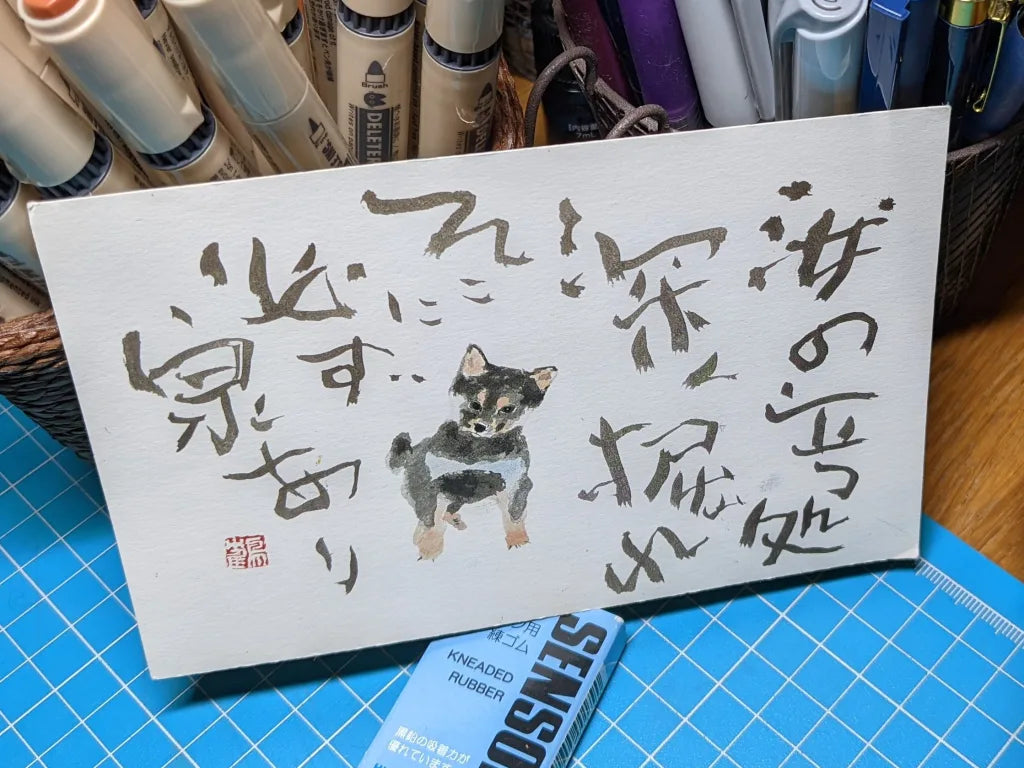 汝の立つ処
深く掘れ
そこに
必ず
泉あり
Brush
DELETER
用
練ゴム
KNEADED
RUBBER
SENSO
黒鉛の吸着力が
優れています